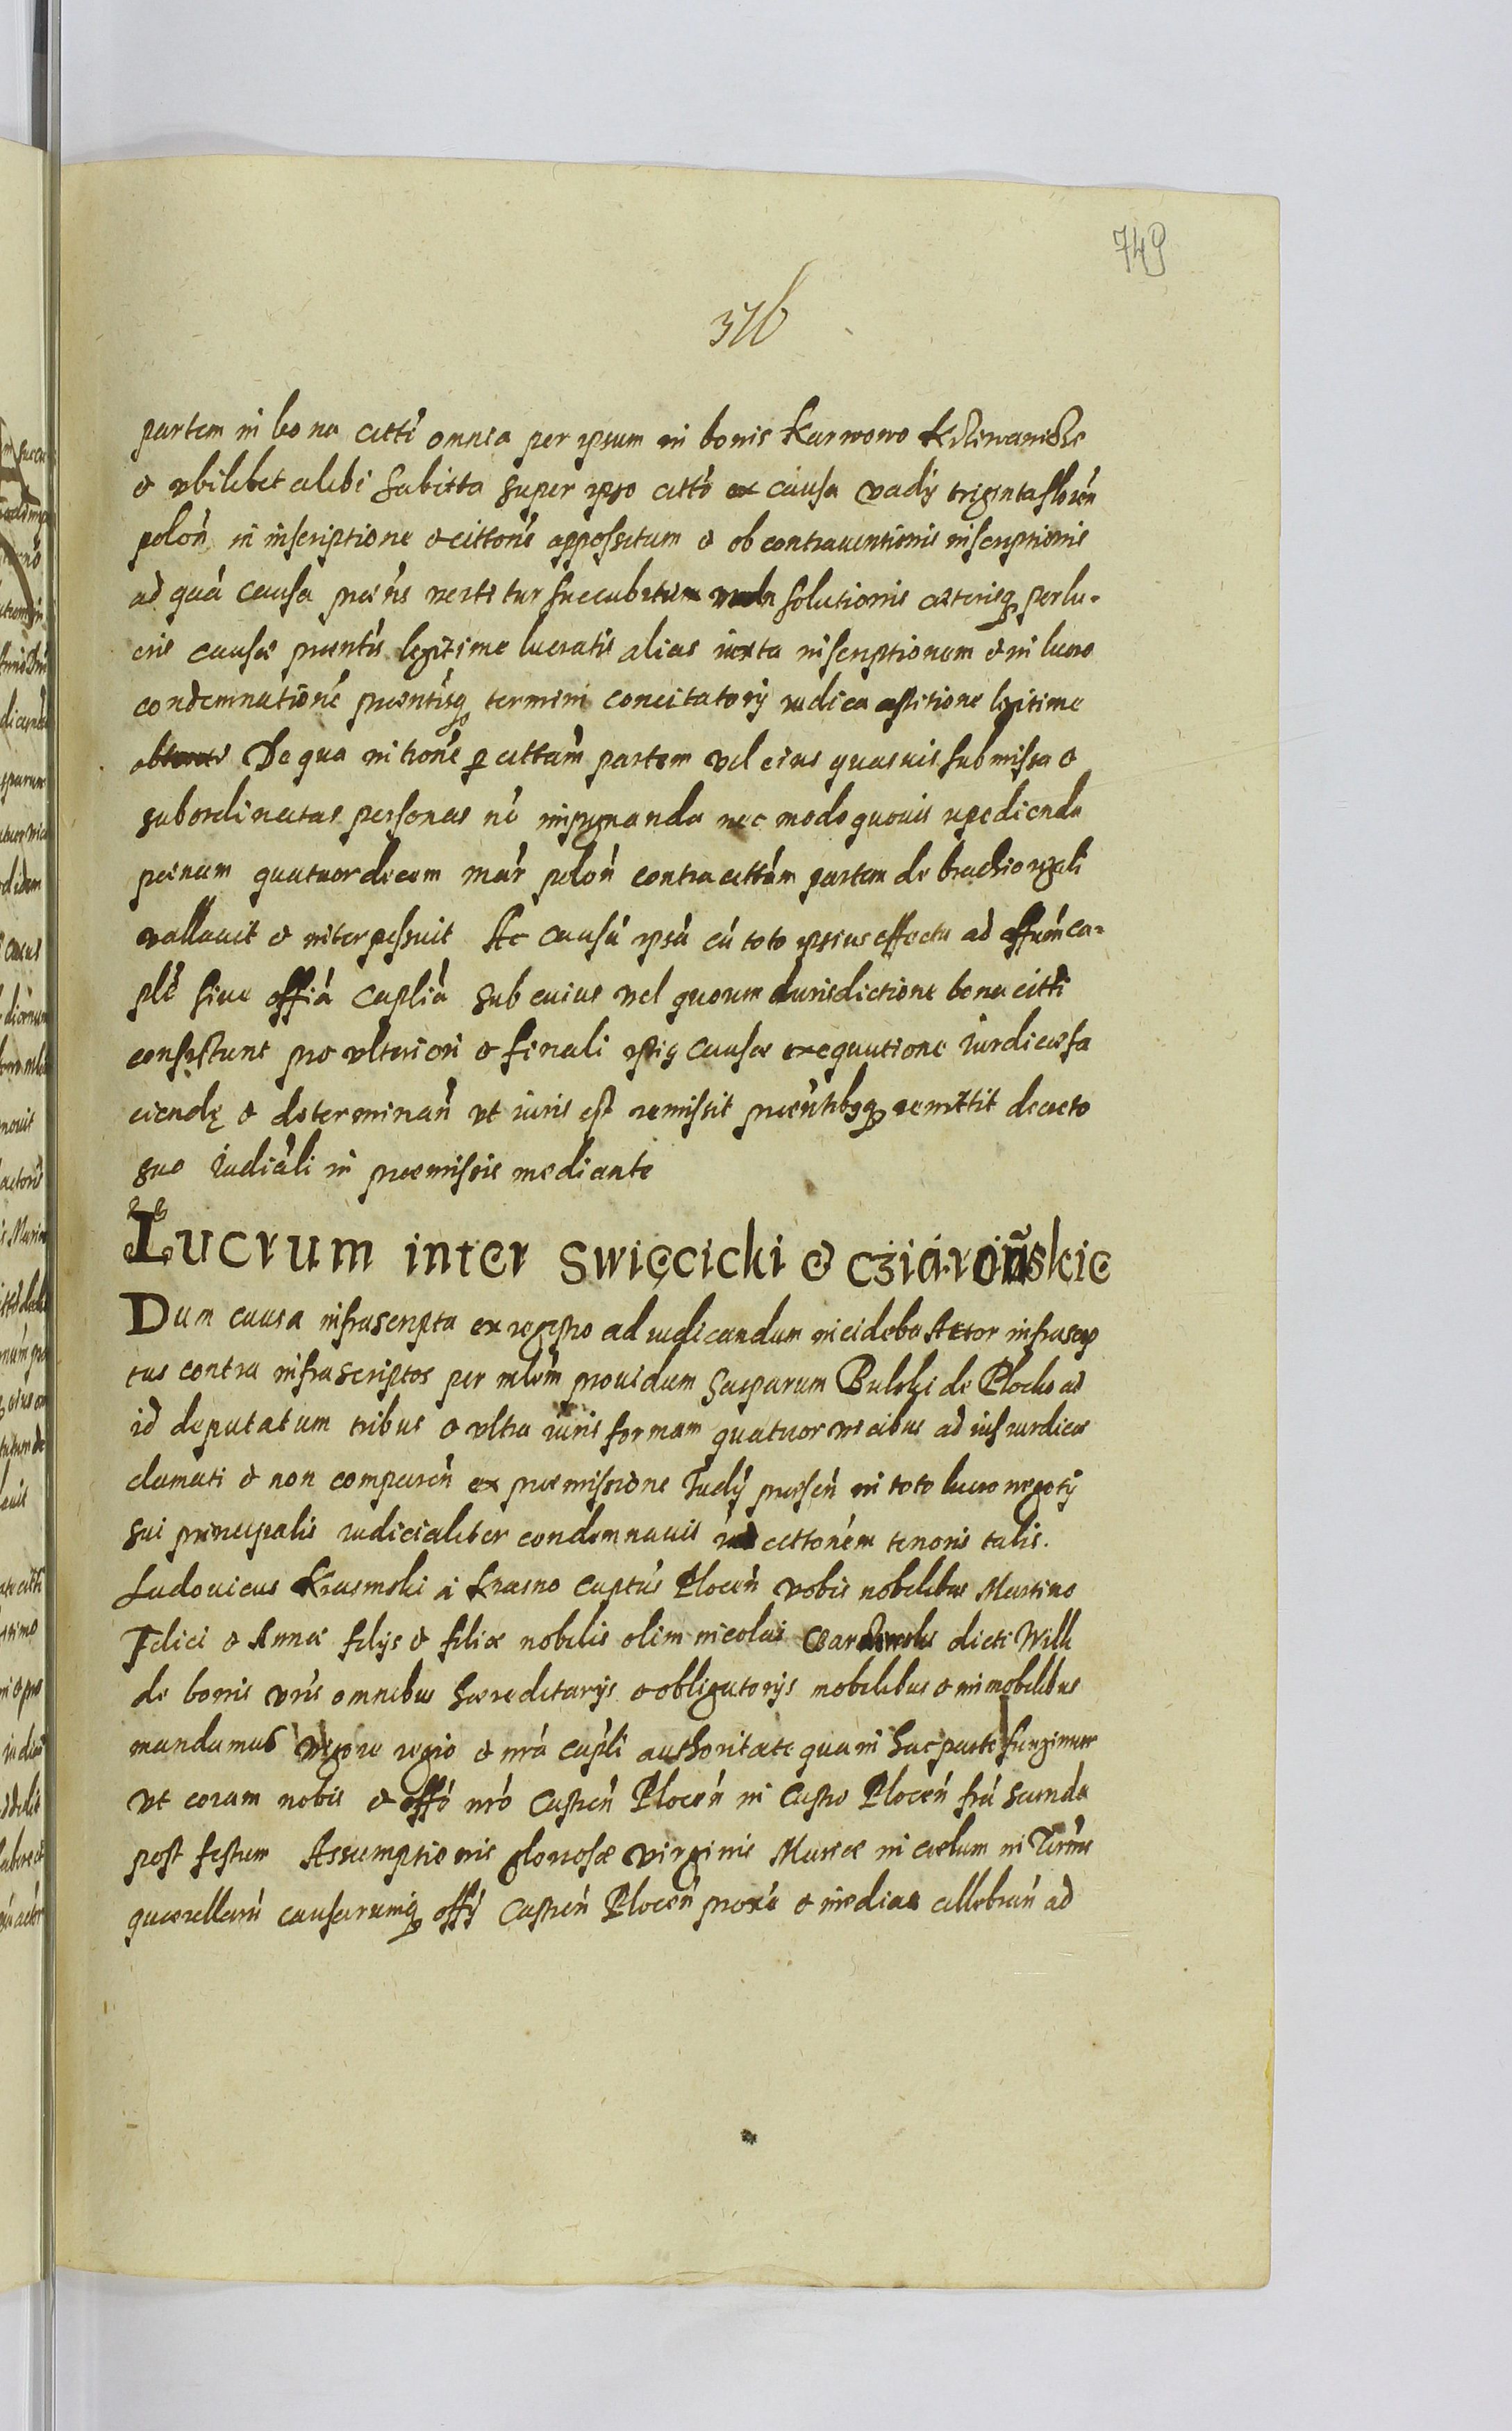 749
376
partem in bona citti omnia per ipsum in bonis Karwowo
& vbilibet alibi habitta super ipso citto ex causa vadij triginta floren
polon in inscriptione & cittone appossitum & ob contrauentionis inscriptionis
ad quá causa præns vertitur succubitum solutionis cæterisq perlu-
cris causæ præntis legitime lucratis alias iuxta inscriptionem & in lucro
condemnatione præntisq termini concitatorij iudica astitione legitime
De qua intrōne p cittam partem vel eius quasuis submissa &
subordinatas personas nō impugnanda nec modo quouis impedienda
pœnam quatuordecem már polon contra cittám partem de brachio regali
vallauit & interpossuit Ac causá ipsá cú toto ipsius effectu ad offium ca-
plē siue offiá caplia sub cuius vel quorum iurisdictione bona citti
consistunt pro vlteriori & finali istiq causæ exequutione iurdicæ fa
ciendę & determinan vt iuris est remissit præntibqq remittit decreto
suo iudiáli in præmissis mediante
Lucrum inter Swięcicki & Cziárońskie
Dum causa infrascripta ex regestro ad iudicandum incideba Actor infrascrip
tus contra infrascriptos per mlem prouidum Gasparum Bulski de Plocko ad
id deputatum tribus & vltra iuris formam quatuor vicibus ad ius iurdicæ
clamati & non comparen ex præmissione Iudij præsen in toto lucro negotij
sui principalis iudicialiter condemnauit cittonem tenoris talis.
Ludouicus Krasinski á Krasno Captús Plocen vobis nobilibus Martino
Felici & Annæ filijs & filiæ nobilis olim Nicolai dicti Wilk
de bonis vris omnibus hæreditarijs & obligatorijs mobilibus & immobilibus
mandamus vigore regio & nrá capli authoritate qua in hac parte fungimur
vt coram nobis & offó nró Castren Plocen in Castro Plocen fria secunda
post festum Assumptionis gloriosæ virginis Mariæ in cælum in Termis
quærellarú causarumq offij Castren Plocen proxe & medias cellebran ad